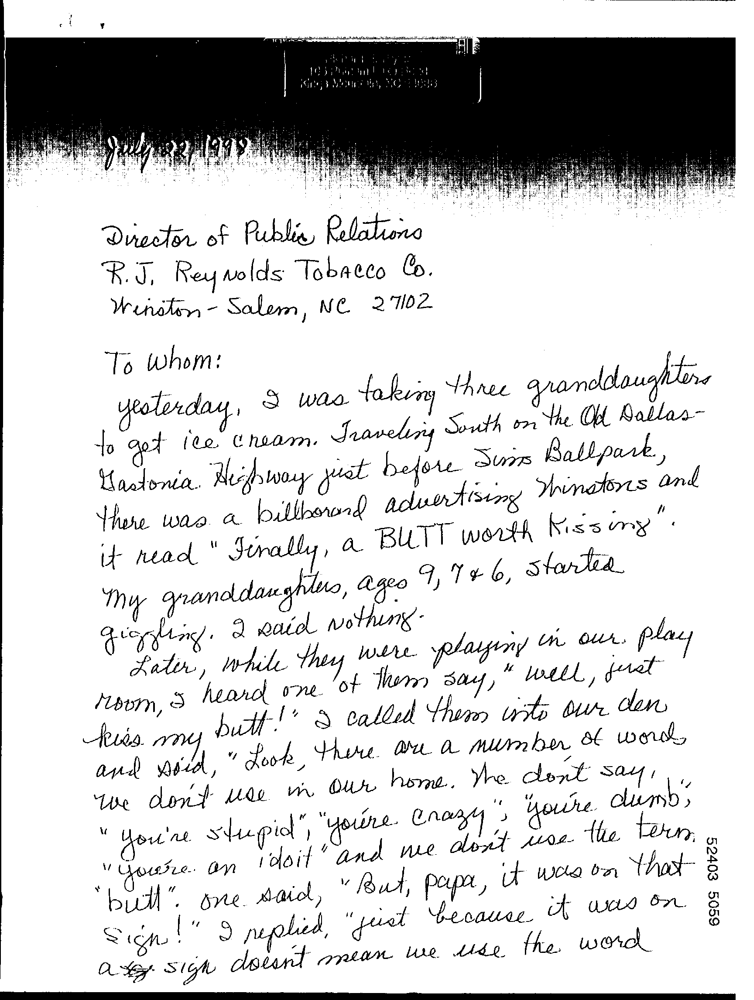 July 22, 1998
Director of Public Relations
R.J. Reynolds Tobacco Co.
Winston-Salem, NC 27102
To Whom:
yesterday, I was taking three granddaughters
to get ice cream. Traveling South on the Old Dallas-
Gastonia Highway just before Sims Ballpark,
there was a billborard advertising Winstons and
it read "Finally, a BUTT worth Kissing".
My granddaughters, ages 9, 7 & 6, started
giggling. I said nothing.
Later, while they were playing in our play
room, I heard one of them say, "well, just
kiss my butt!" I called them into our den
and said, "Look, there are a number of words
we don't use in our home. We don't say,
"you're stupid", "you're crazy", "you're dumb",
"you're an idoit" and we don't use the term
"butt". One said, "But, papa, it was on that
sign!" I replied, "just because it was on
a sign doesn't mean we use the word
52403 5059